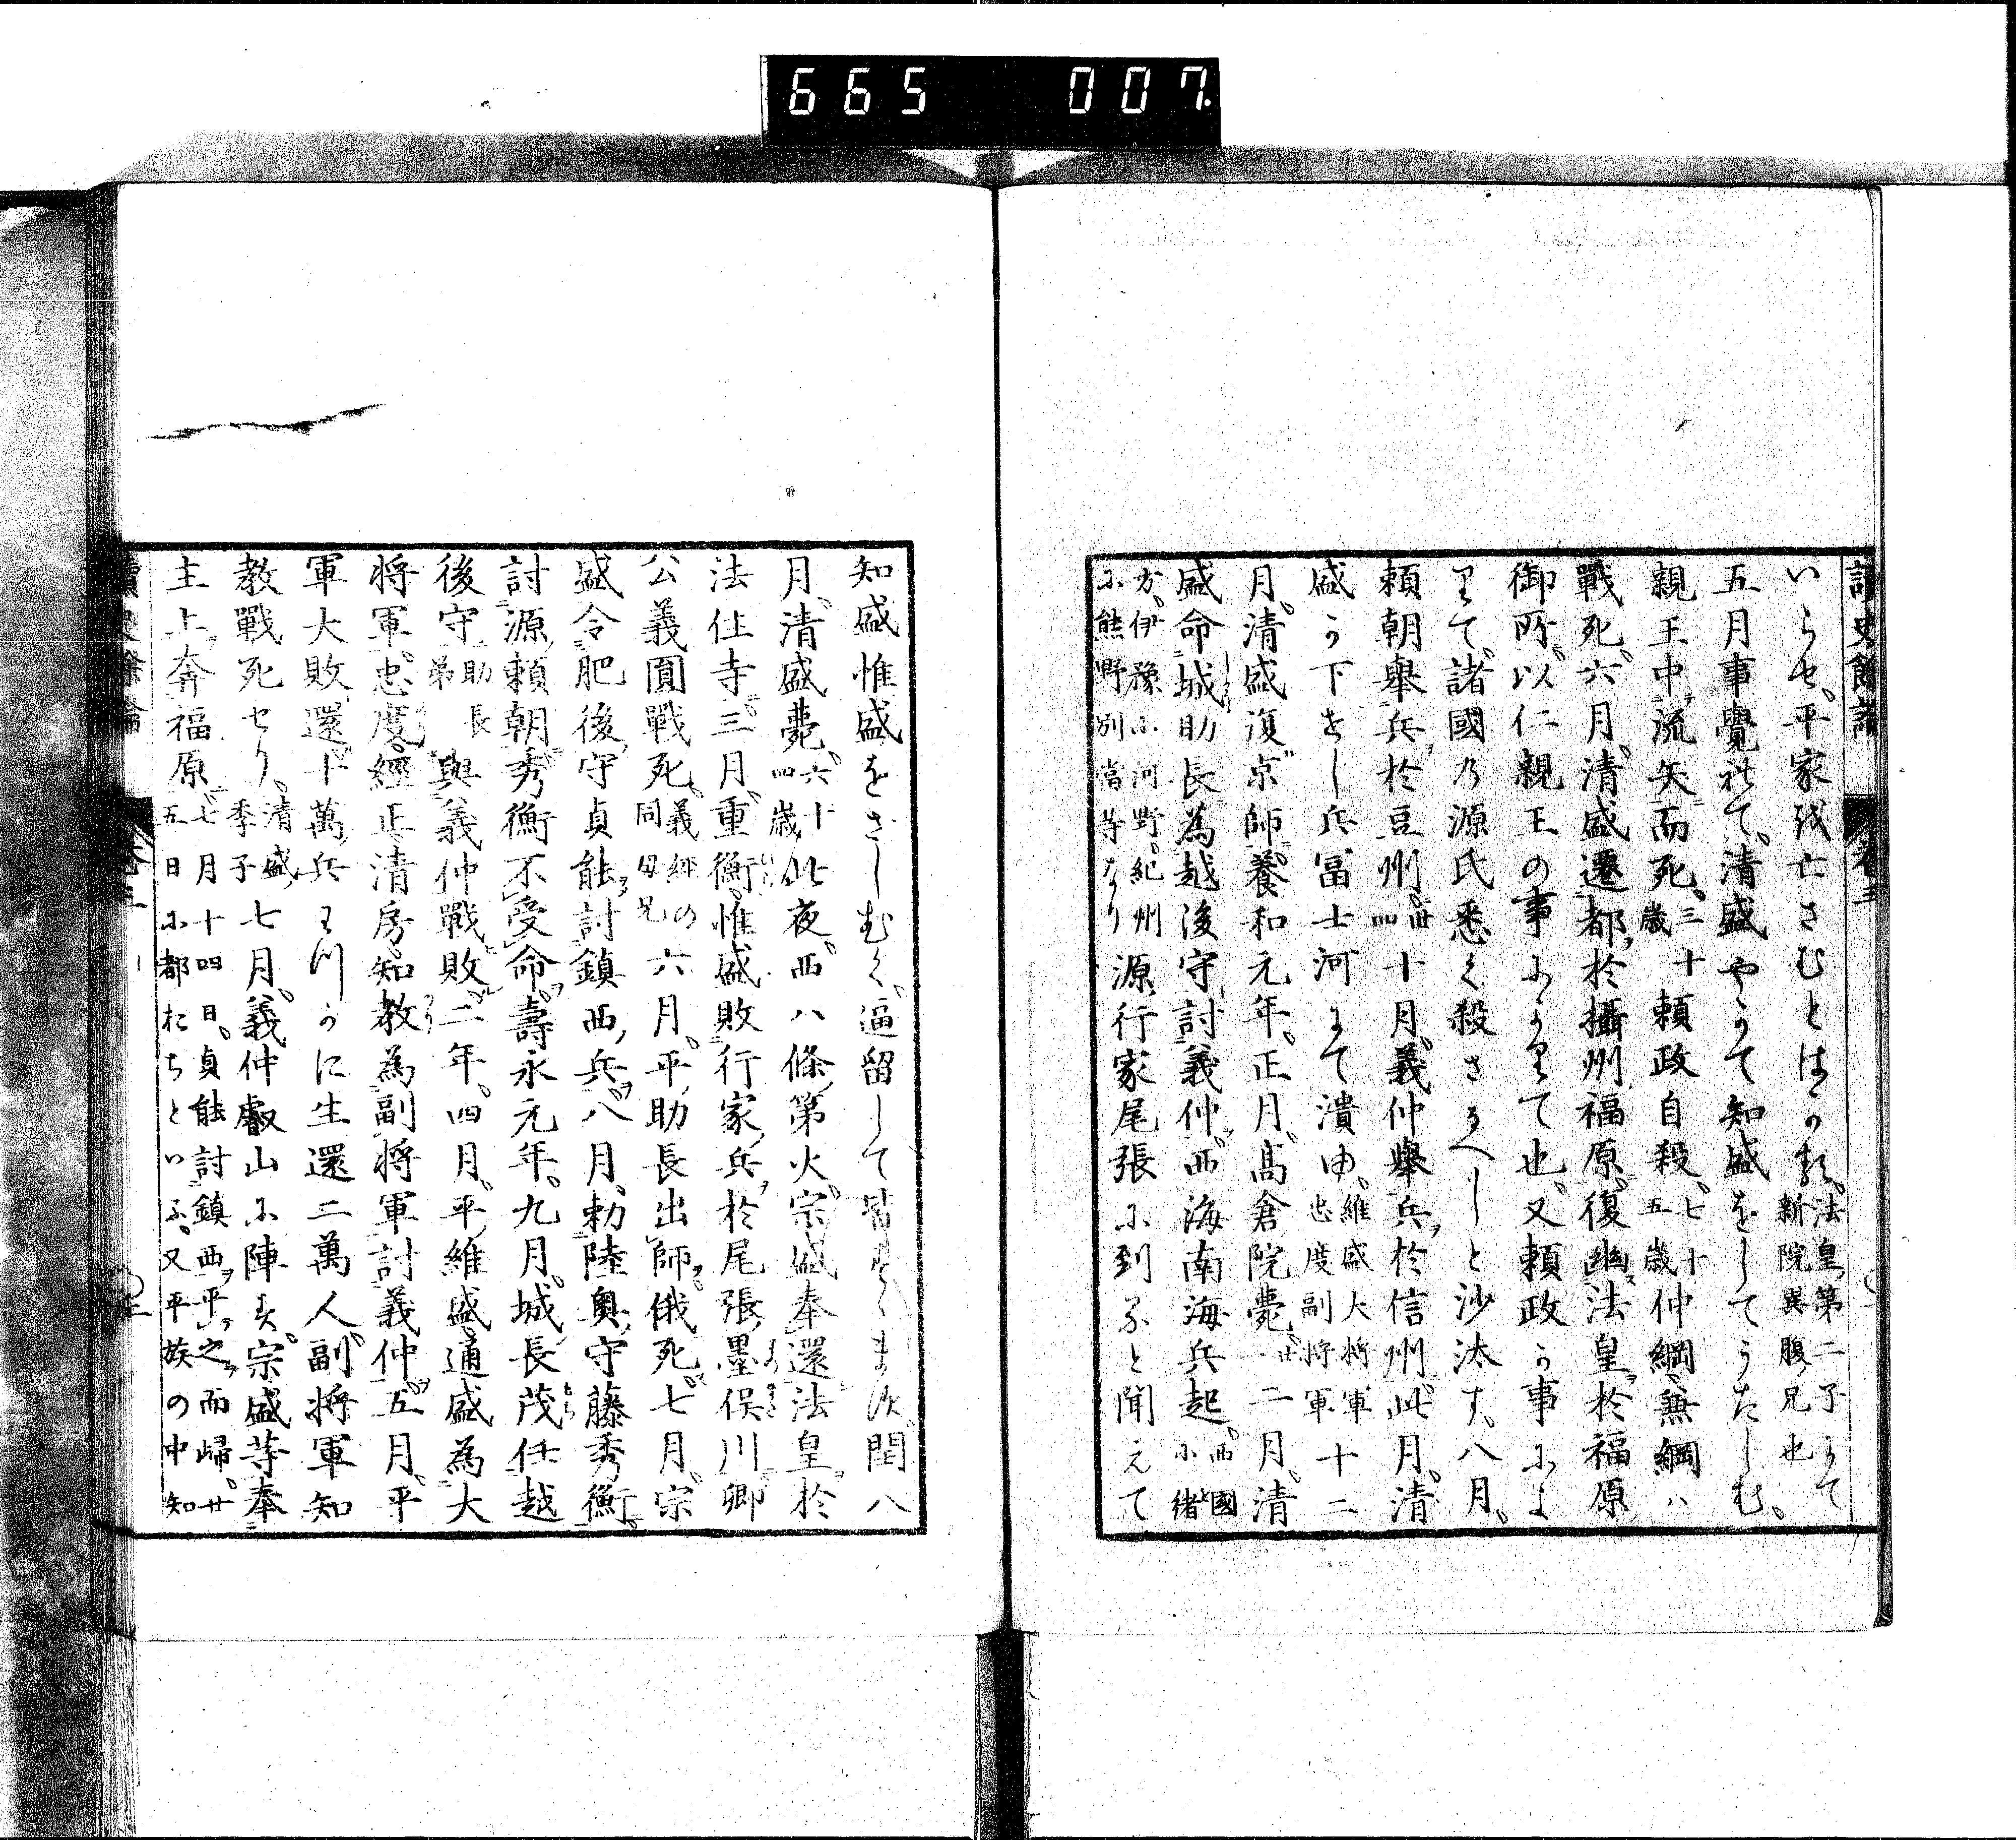 665 007
讀史餘論 卷三
いらせ、平家を亡さむとはかる、法皇第二子にて新院異腹兄也
五月事覺れて、清盛やかて知盛をしてうたしむ、
親王中流矢而死、三十歳 頼政自殺、七十五歳 仲綱、兼綱ハ
戰死、六月、清盛遷都於攝州福原、復幽法皇於福原
御所、以仁親王の事により て也、又頼政か事によ
りて、諸國乃源氏悉く殺さるへしと沙汰す、八月、
頼朝舉兵於豆州、卅四 十月、義仲舉兵於信州、此月、清
盛か下せし兵、冨士河にて潰由、維盛大將軍忠度副將軍 十二
月、清盛復京師、養和元年、正月、高倉院薨、廿一 二月、清
盛命城助長為越後守、討義仲、西海南海兵起、西國ニ緒
方、伊豫ニ河野、紀州ニ熊野別當等なり 源行家尾張に到ると聞えて
知盛惟盛をさしむく、逼留して皆々くまぬ、閏八
月、清盛薨、六十四歳 此夜、西八條第火、宗盛奉還法皇於
法住寺、三月、重衡、惟盛敗行家兵於尾張墨俣川、卿
公義圓戰死、義經の同母兄 六月、平助長出師、俄死、七月、宗
盛令肥後守貞能討鎮西兵、八月、勅陸奥守藤秀衡
討源頼朝、秀衡不受命、壽永元年、九月、城長茂任越
後守、助長弟 與義仲戰敗、二年、四月、平維盛、通盛為大
將軍、忠度、經正、清房、知教為副將軍討義仲、五月、平
軍大敗、還十萬兵わつかに生還二萬人、副將軍知
教戰死せり、清盛季子 七月、義仲叡山に陣す、宗盛等奉
主上奔福原、七月十四日、貞能討鎮西平之而歸、廿五日に都おちといふ、又平族の中知
讀史餘論 卷三